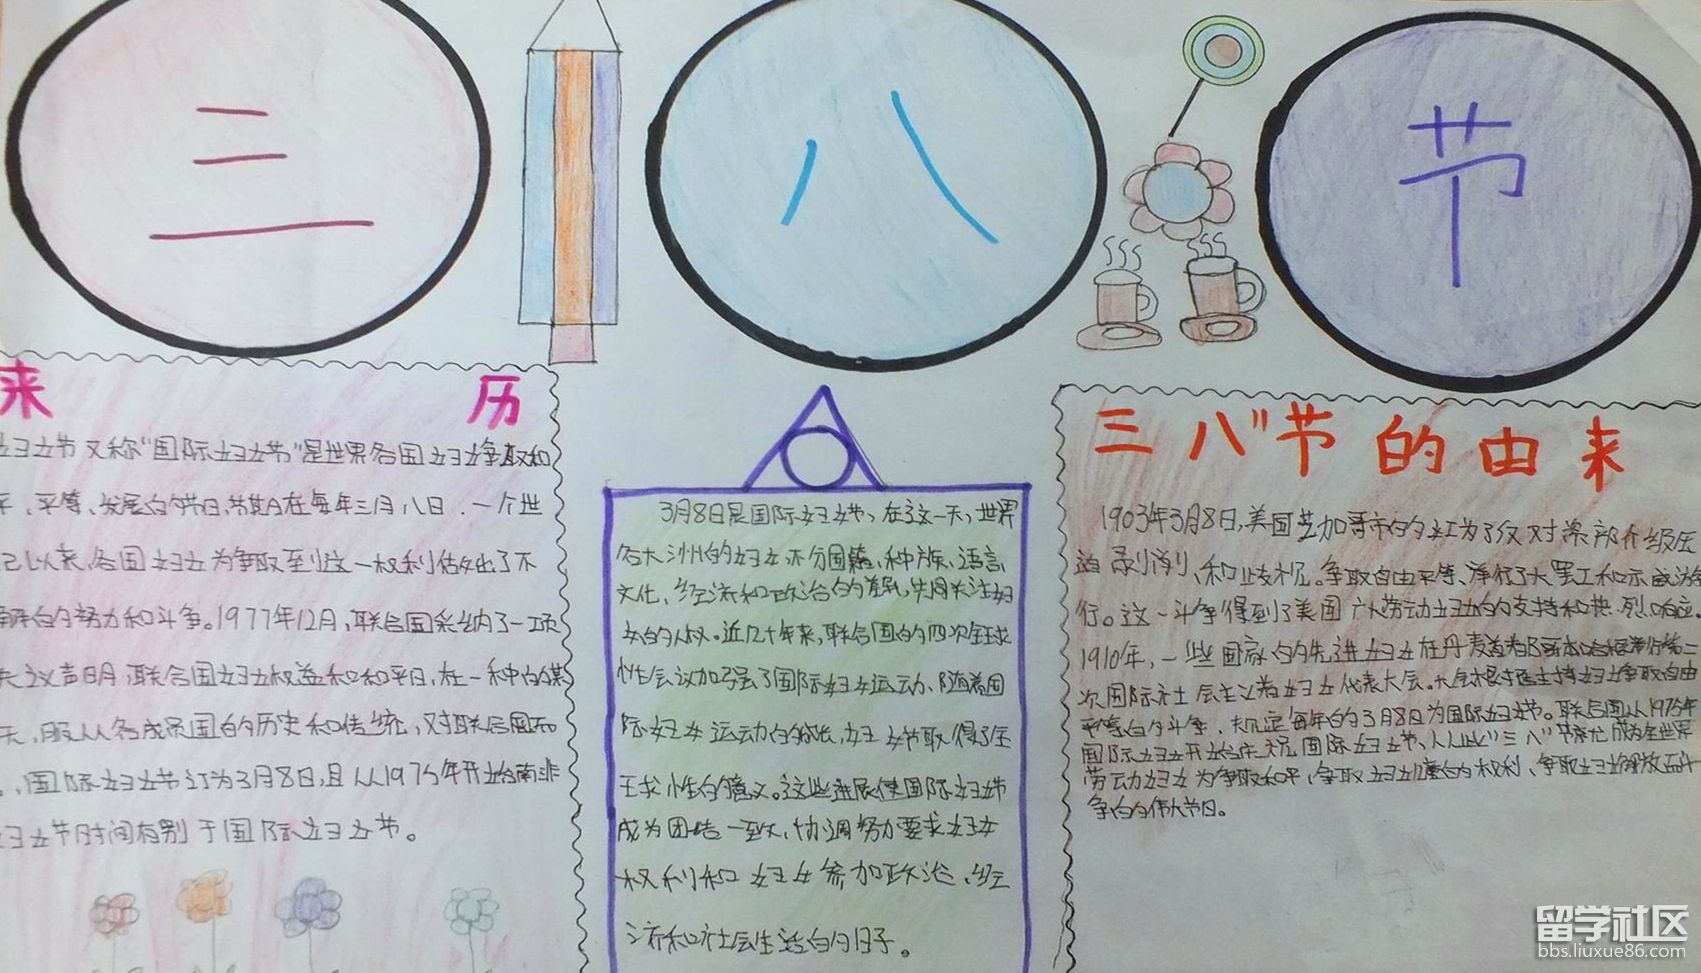 三 八 节
来 历
妇女节又称“国际妇女节”是世界各国妇女争取和
平、平等、发展的节日,节期在每年三月八日.一个世
纪以来,各国妇女为争取到这一权利做出了不
懈的努力和斗争。1977年12月,联合国采纳了一项
决议声明,联合国妇女权益和和平日,在一种的某
天,服从各成员国的历史和传统,对联合国而
,国际妇女节订为3月8日,且从1975年开始南非
妇女节时间有别于国际妇女节。
3月8日是国际妇女节,在这一天,世界
各大洲的妇女不分国籍、种族、语言
文化、经济和政治的差异,共同关注妇
女的人权。近几十年来,联合国的四次全球
性会议加强了国际妇女运动、随着国
际妇女运动的成长,妇女节取得了全
球性的意义。这些进展使国际妇女节
成为团结一致、协调努力要求妇女
权利和妇女参加政治、经
济和社会生活的日子。
三八”节的由来
1903年3月8日,美国芝加哥市的女工为了反对资产阶级压
迫剥削、和歧视。争取自由平等、举行了大罢工和示威游
行。这一斗争得到了美国广大劳动妇女的支持和热烈响应。
1910年,一些国家的先进妇女在丹麦首都哥本哈根举行第二
次国际社会主义者妇女代表大会。大会根据主持妇女争取自由
平等的斗争、决定每年的3月8日为国际妇女节。联合国从1975年
国际妇女开始庆祝国际妇女节、从此“三八”节成为全世界
劳动妇女为争取和平、争取妇女儿童的权利、争取妇女解放而斗
争的伟大节日。
留学社区
bbs.liuxue86.com